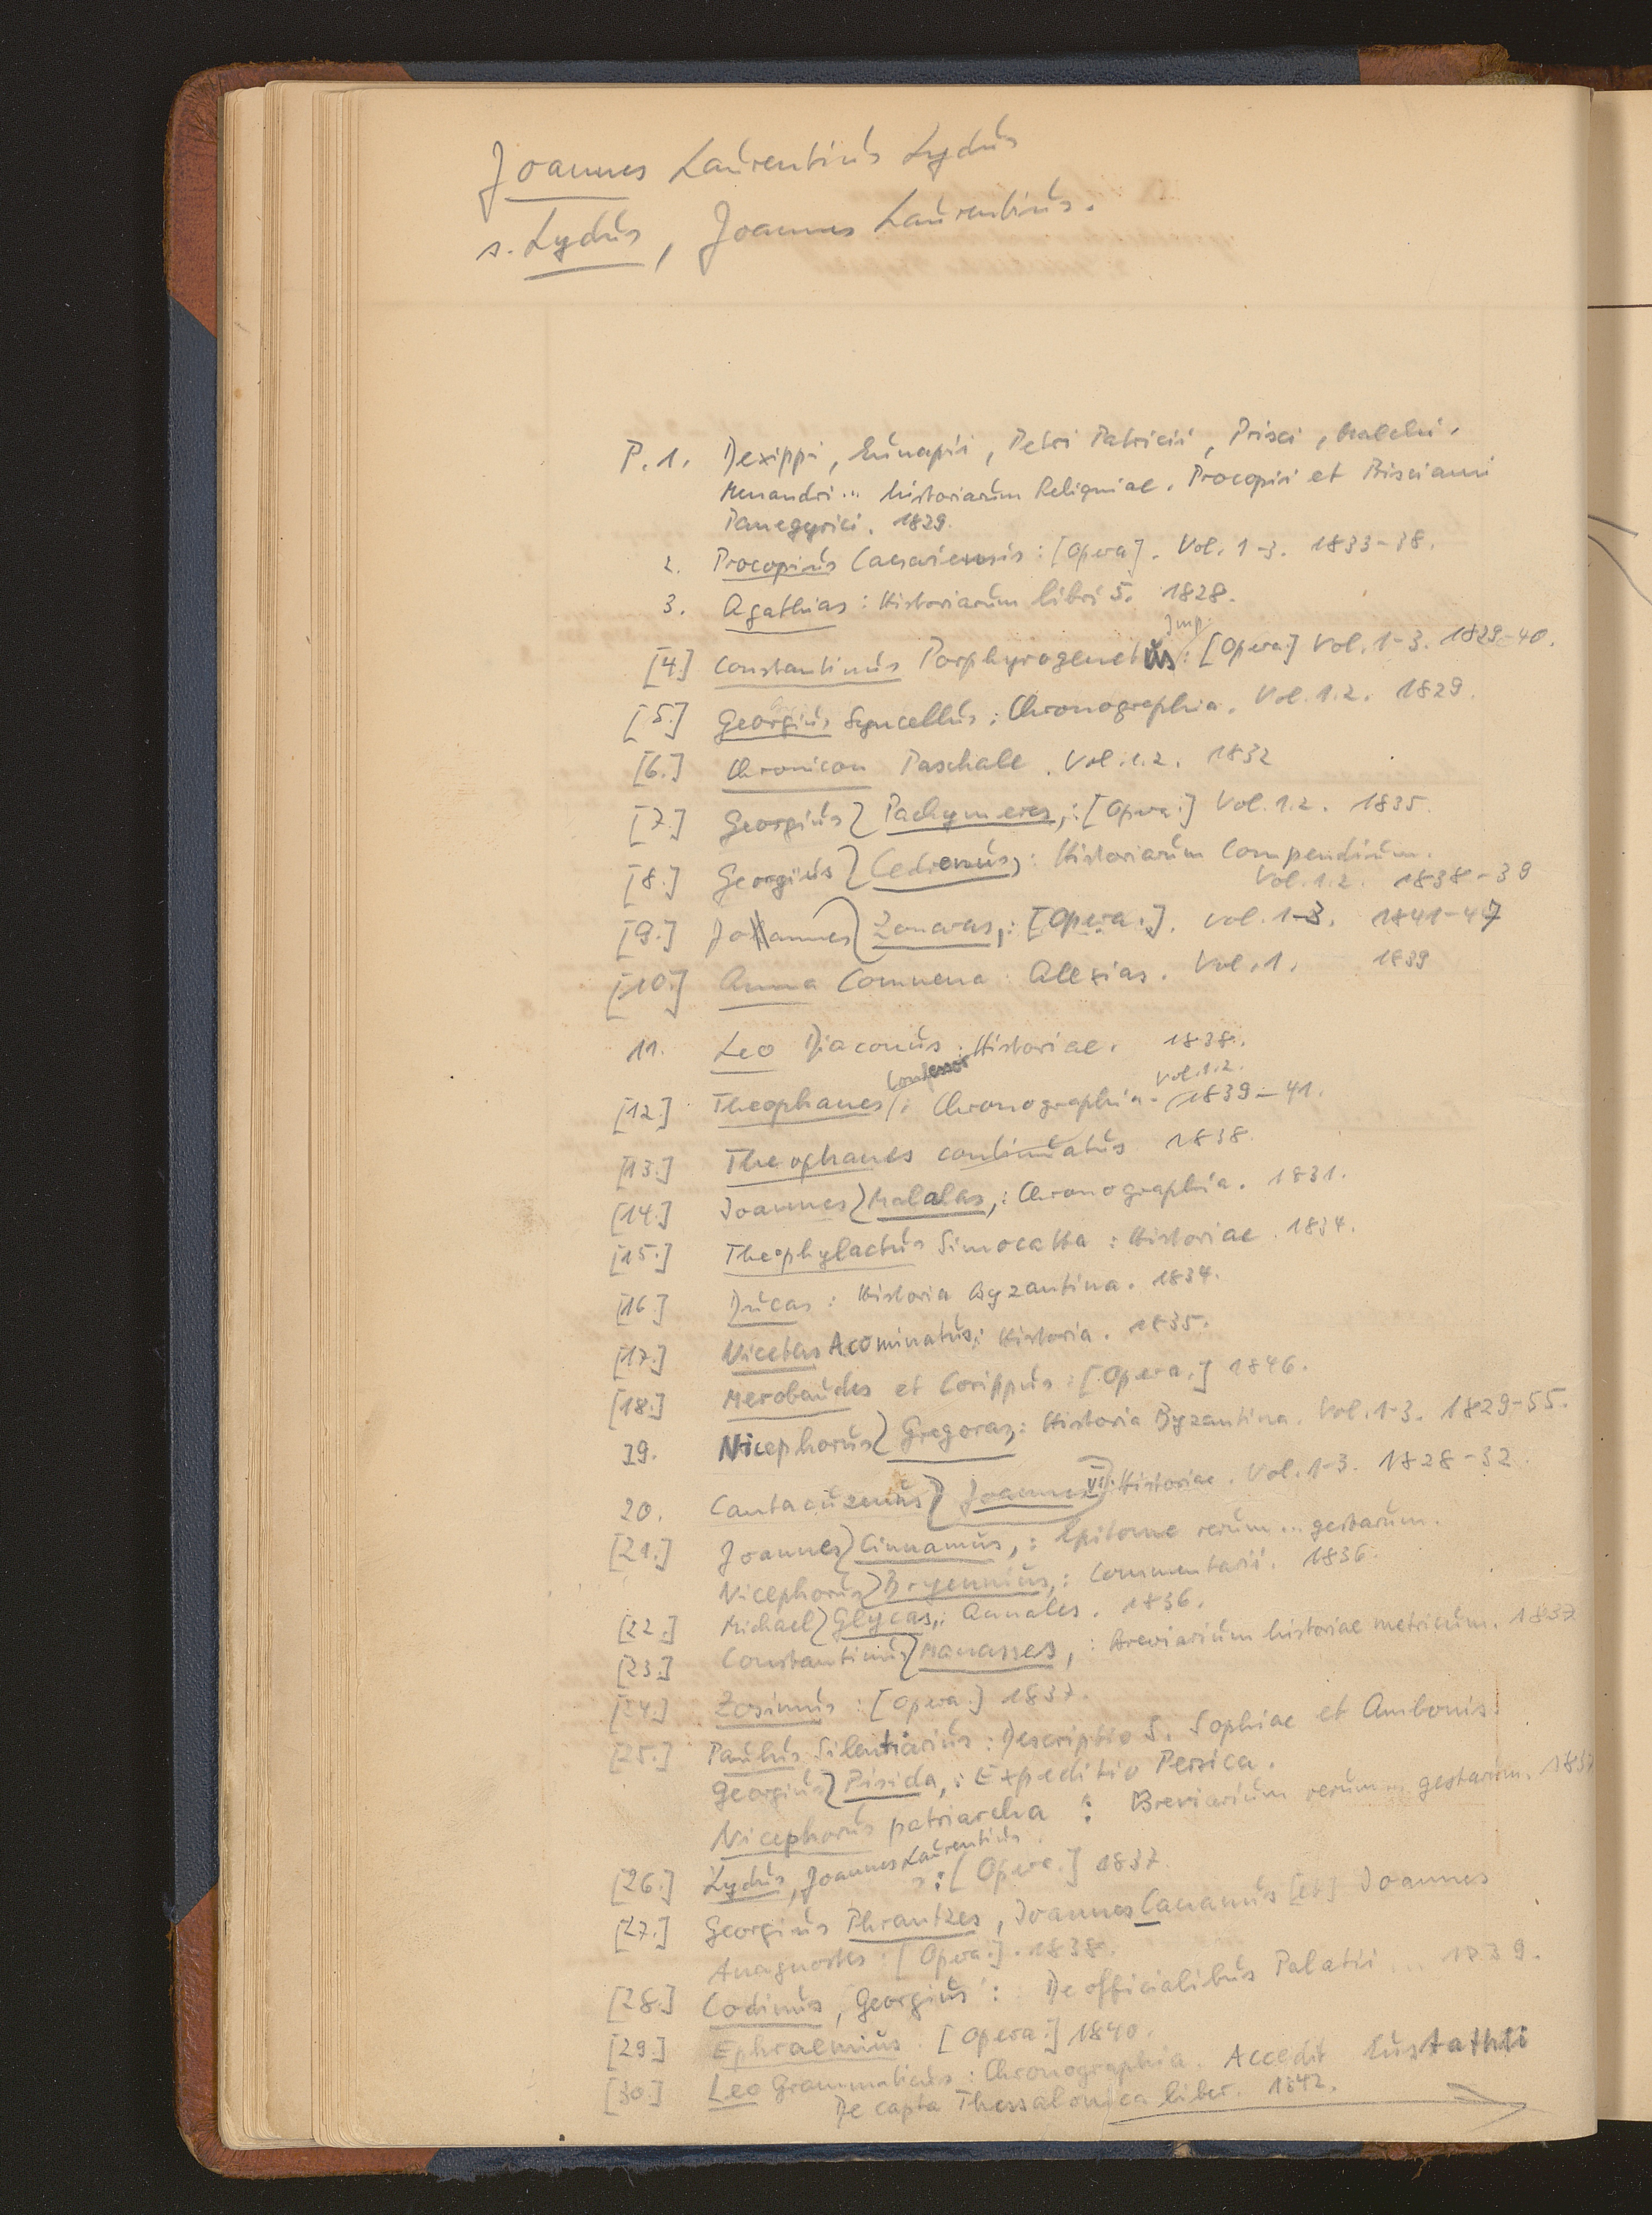 Joannes Laurentius Lydus
s. Lydus, Joannes Laurentius.
P. 1. Dexippi, Eunapii, Petri Patricii, Prisci, Malchi,
Menandri ... historiarum Reliquiae. Procopii et Prisciani
Panegyrici. 1829.
2. Procopius Caesariensis: [Opera]. Vol. 1-3. 1833-38.
3. Agathias: Historiarum libri 5. 1828.
Imp.
[4.] Constantinus Porphyrogenetus: [Opera.] Vol. 1-3. 1829-40.
[5.] Georgius Syncellus: Chronographia. Vol. 1.2. 1829.
[6.] Chronicon Paschale. Vol. 1.2. 1832
[7.] Georgius} Pachymeres,: [Opera.] Vol. 1.2. 1835.
[8.] Georgius} Cedrenus,: Historiarum Compendium.
Vol. 1.2. 1838-39
[9.] Johannes} Zonaras,: [Opera.]. Vol. 1-3. 1841-47
[10.] Anna Comnena: Alexias. Vol. 1. 1839
11. Leo Diaconus: Historiae. 1838.
Confessor Vol. 1.2.
[12.] Theophanes/: Chronographia. 1839-41.
[13.] Theophanes continuatus 1838.
[14.] Joannes} Malalas,: Chronographia. 1831.
[15.] Theophylactus Simocatta: Historiae. 1834.
[16.] Ducas: Historia Byzantina. 1834.
[17.] Nicetas Acominatus: Historia. 1835.
[18.] Merobaudes et Corippus: [Opera.] 1846.
19. Nicephorus} Gregoras,: Historia Byzantina. Vol. 1-3. 1829-55.
20. Cantacuzenus} Joannes VI: Historiae. Vol. 1-3. 1828-32.
[21.] Joannes} Cinnamus,: Epitome rerum ... gestarum.
Nicephorus} Bryennius,: Commentarii. 1836.
[22.] Michael} Glycas,: Annales. 1836.
[23.] Constantinus} Manasses,: Breviarium historiae metricum. 1837
[24.] Zosimus: [Opera.] 1837.
[25.] Paulus Silentiarius: Descriptio S. Sophiae et Ambonis.
Georgius} Pisida,: Expeditio Persica.
Nicephorus patriarcha: Breviarium rerum ... gestarum. 1837
[26.] Lydus, Joannes Laurentius: [Opera.] 1837.
[27.] Georgius Phrantzes, Joannes Cananus [et] Joannes
Anagnostes: [Opera.]. 1838.
[28.] Codinus, Georgius: De officialibus Palatii ... 1839.
[29.] Ephraemius: [Opera.] 1840.
[30.] Leo Grammaticus: Chronographia. Accedit Eustathii
De capta Thessalonica liber. 1842.